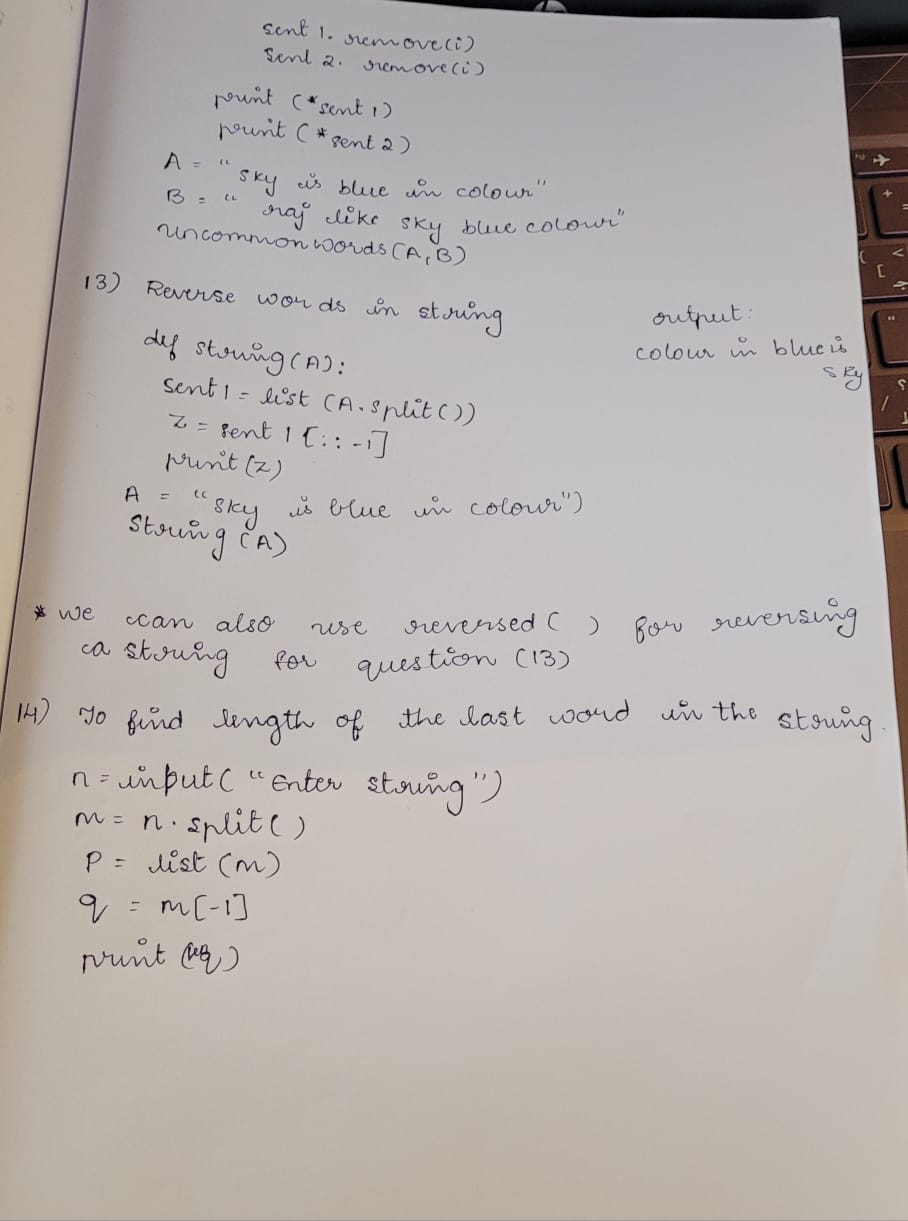 sent 1. remove(i)
Sent 2. remove(i)
print (*sent 1)
print (*sent 2)
A = "sky is blue in colour"
B = "raj like sky blue colour"
uncommonwords(A,B)
13) Reverse words in string
output:
colour in blue is
sky
def string(A):
sent 1 = list (A.split())
z = sent 1 [::-1]
print(z)
A = "sky is blue in colour")
String (A)
* we can also use reversed ( ) for reversing
a string for question (13)
14) To find length of the last word in the string.
n = input( "Enter string")
m = n. split( )
P = list (m)
q = m[-1]
print (q)